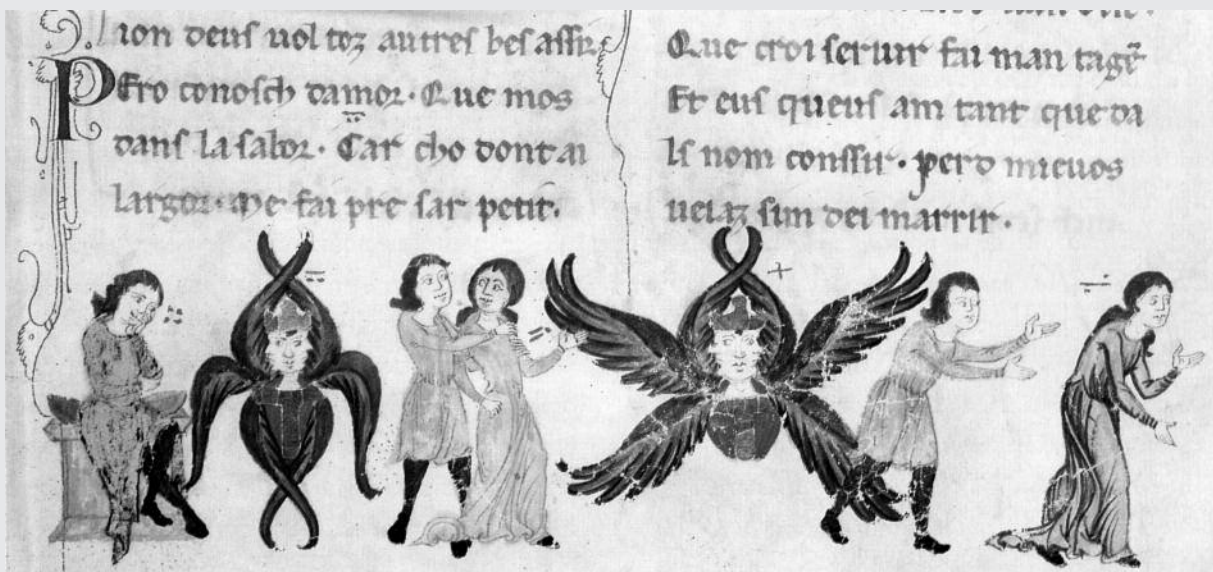 lion deus uol toz autres bes assir.
Pero conosch damor. Que mos
dans la sabor. Car cho dont ai
largor. Me fai pre sar petit.
Que croi seruir fai man tagē
Et eus queus am tant que da
ls nom conssir. pero mieuos
ueiaz sim dei marrir.